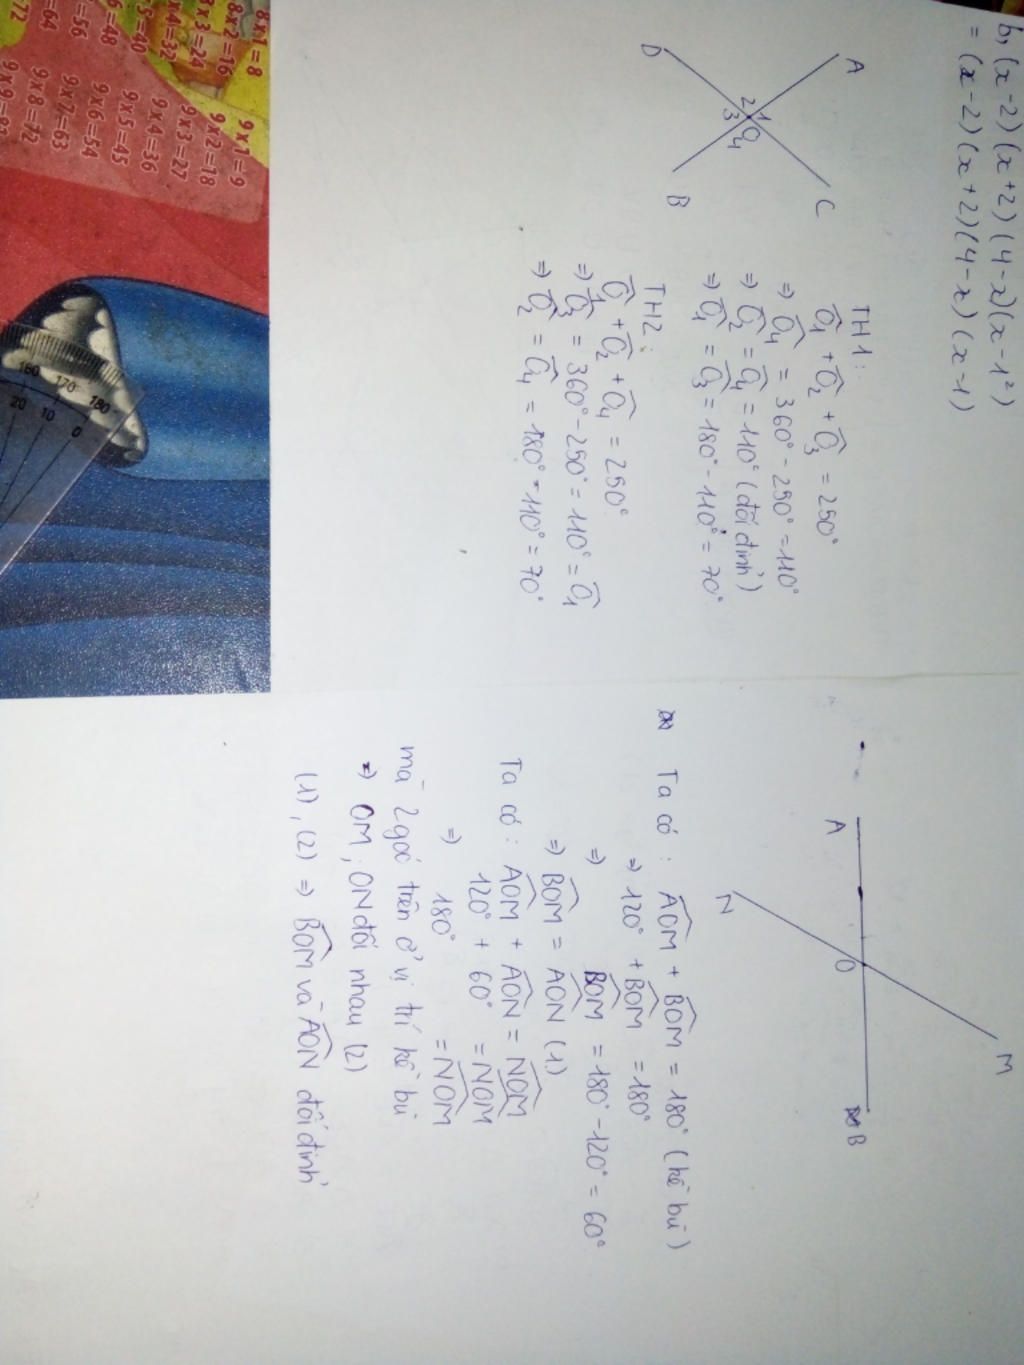 b, (x-2)(x+2)(4-x)(x-1²)
= (x-2)(x+2)(4-x)(x-1)
A
D
C
B
1
2
3
O
4
TH1:
Ô1 + Ô2 + Ô3 = 250°
=> Ô4 = 360° - 250° = 110°
=> Ô2 = Ô4 = 110° (đối đỉnh)
=> Ô1 = Ô3 = 180° - 110° = 70°
TH2:
Ô1 + Ô2 + Ô4 = 250°
=> Ô3 = 360° - 250° = 110° = Ô1
=> Ô2 = Ô4 = 180° - 110° = 70°
M
A
O
B
N
Ta có : AOM + BOM = 180° (kề bù)
=> 120° + BOM = 180°
=> BOM = 180° - 120° = 60°
=> BOM = AON (1)
Ta có : AOM + AON = NOM
120° + 60° = NOM
=> 180° = NOM
mà 2 góc trên ở vị trí kề bù
=> OM, ON đối nhau (2)
(1), (2) => BOM và AON đối đỉnh
8x1=8
8x2=16
8x3=24
x4=32
x5=40
6=48
=56
=64
72
9x1=9
9x2=18
9x3=27
9x4=36
9x5=45
9x6=54
9x7=63
9x8=72
160
170
180
20
10
0